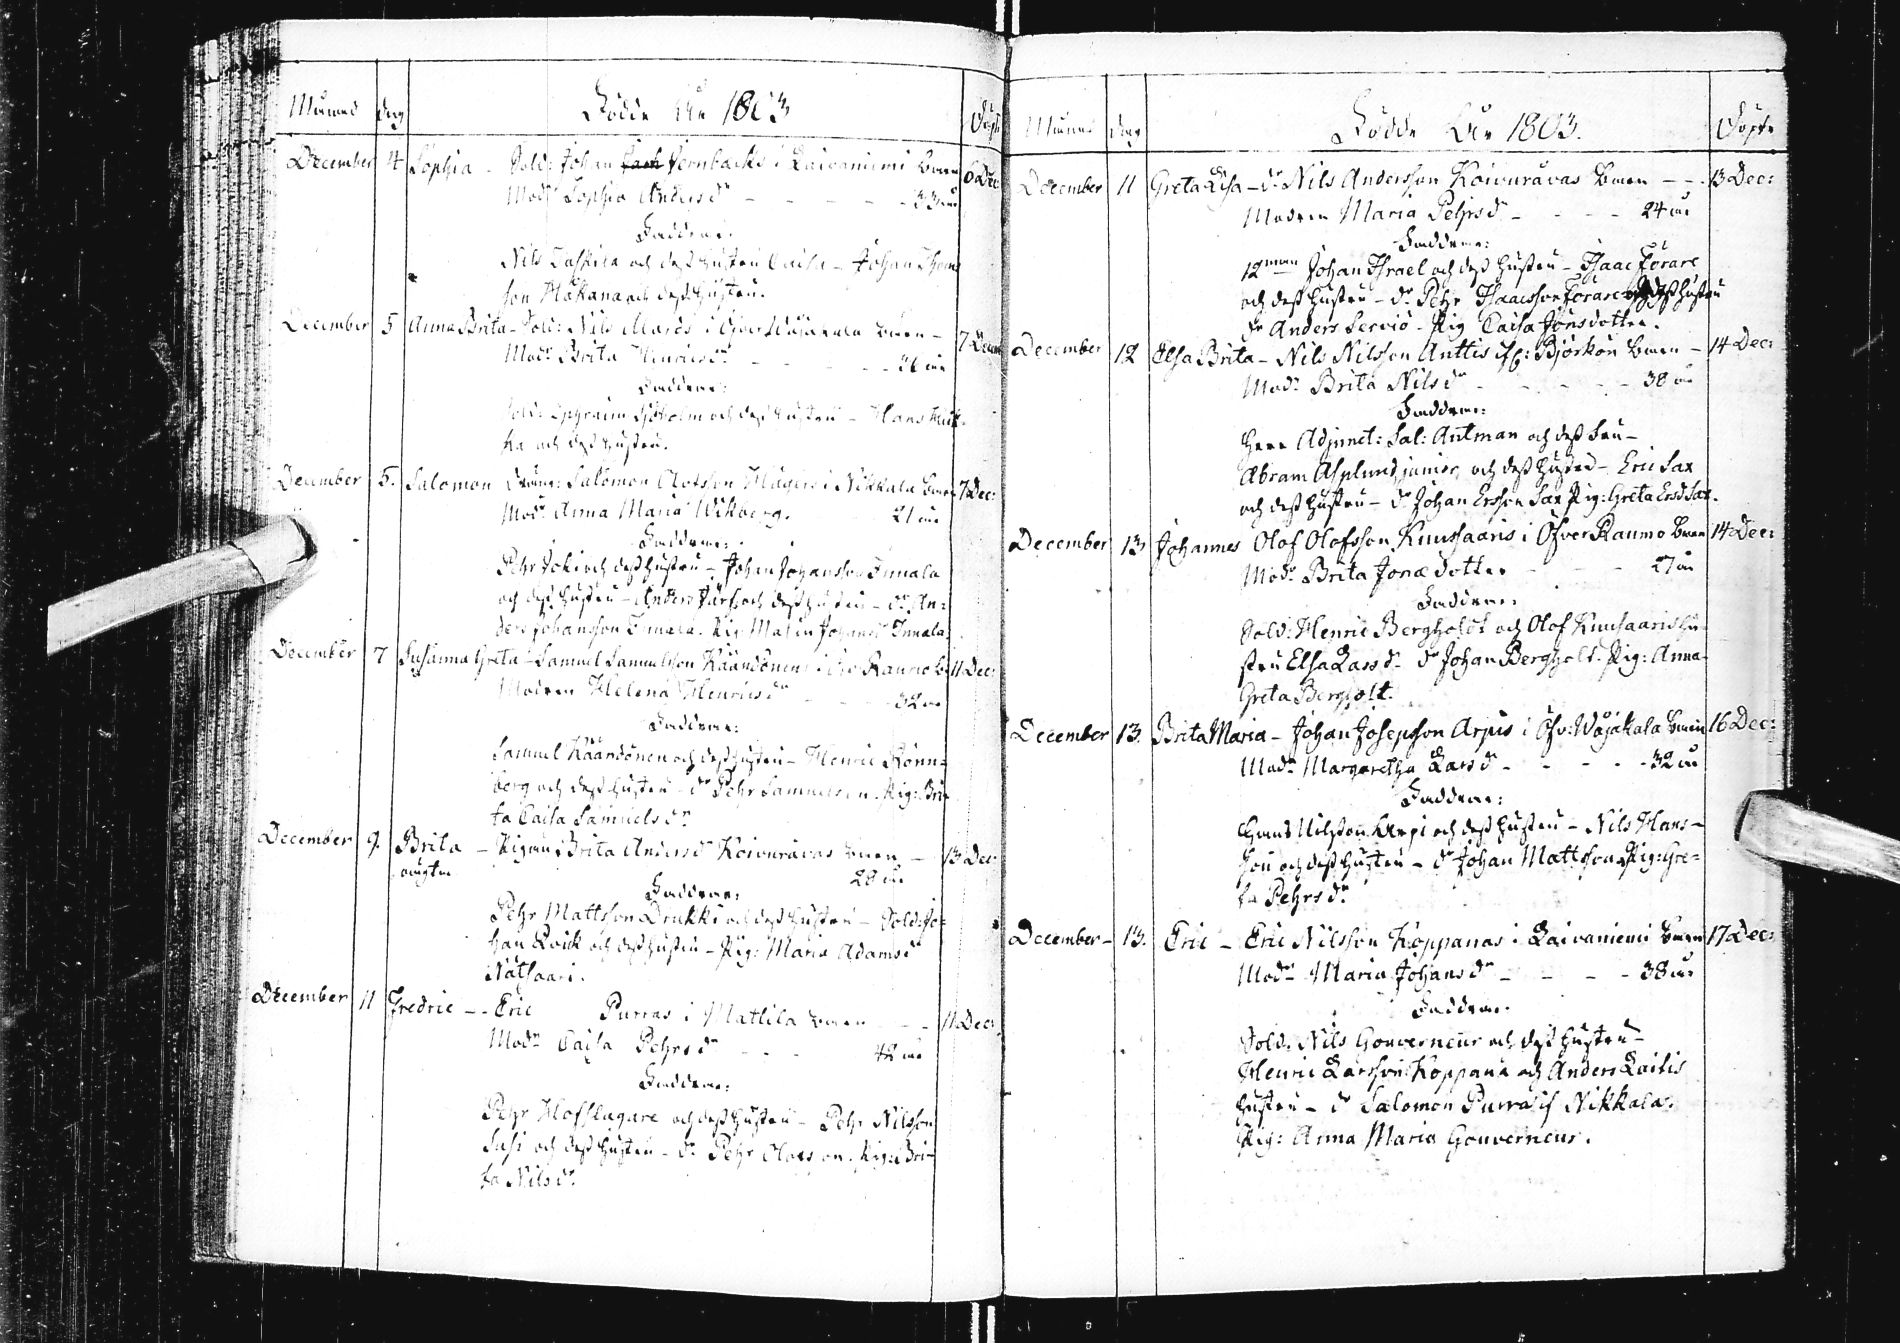 Månad dag Födde År 1803 Döpte
December 4 Sophia - Sold: Johan Jernbacks i Laivaniemi barn 6 Dec
Modr Sophia Andersdr - - - - 33 år
Faddrar:
Nils Taskila och dess hustru Caisa - Johan Thoms
son Håkana och dess hustru.
December 5 Anna Brita - Sold: Nils i Öfver Wojakala barn - 7 Decem
Modr Brita Henricsdr - - - - 26 år
Faddrar:
Sold: Ephraim Sjöholm och dess hustru - Hans
ka och dess hustru.
December 5. Salomon Salomon Olofsson Hägers i Nikkala barn 7 Dec:
Modr Anna Maria Wikberg. 21 år
Faddrar:
Pehr Joki och dess hustru - Johan Johansson Innala
och dess hustru - Anders och dess hustru - dr An-
ders Johansson Innala. Pig: Maria Johansdr Innala
December 7 Susanna Greta - Samuel Samuelsson Käändönens i Raumo b: 11 Dec:
Modren Helena Henricsdr - - 32 år
Faddrar:
Samuel Käändönen och dess hustru - Henric Rönn-
berg och dess hustru - dr Pehr Samuelsson. Pig: Bri-
ta Caisa Samuelsdr
December 9. Brita - Pigan Brita Andersdr Koivuravas barn - 13 Dec:
oägta 28 år
Faddrar:
Pehr Mattsson Drukki och dess hustru - Sold: Jo-
han Qvick och dess hustru - Pig: Maria Adamsdr
Nätsaari.
December 11 Fredric - - Eric Purras i Mattila barn - - 11 Dec:
Modr Caisa Pehrsdr - - - 42 år
Faddrar:
Pehr Hofslagare och dess hustru - Pehr Nilsson
Susi och dess hustru - dr Pehr Olofsson. Pig: Bri-
ta Nilsdr
Månad dag Födde År 1803. Döpte
December 11 Greta Lisa - dr Nils Andersson Koivuravas barn - - - 13 Dec:
Modren Maria Pehrsdr - - - 24 år
Faddrar:
12man Johan Israel och dess hustru - Isaac Förare
och dess hustru - dr Pehr Isaacsson Förare och dess hustru
dr Anders Serviö - Pig Caisa Jönsdotter.
December 12 Elsa Brita - Nils Nilsson Anttis if: Björkön barn - 14 Dec:
Modr Brita Nilsdr - - - - 38 år
Faddrar:
Herr Adjunct: Sal: Antman och dess fru -
Abram Asplund junior och dess hustru - Eric Sax
och dess hustru - dr Johan Ersson Sax Pig: Greta Ersdr Sax.
December 13 Johannes Olof Olofsson Kuusaaris i Öfver Raumo barn 14 Dec:
Modr Brita Jonæ dotter - - - 27 år
Faddrar:
Sold: Henric Bergholdt och Olof Kuusaaris hu-
stru Elsa Larsdr - dr Johan Bergholt. Pig: Anna
Greta Bergholt.
December 13. Brita Maria - Johan Josepsson Arpis i Öfv: Wojakala barn 16 Dec:
Modr Margaretha Larsdr - - - - 32 år
Faddrar:
Hans Nilsson Karpi och dess hustru - Nils Hans-
son och dess hustru - dr Johan Mattsson Pig: Gre-
ta Pehrsdr
December - 13. Eric - Eric Nilsson Koppanas i Laivaniemi barn 17 Dec:
Modr Maria Johansdr - - - - 38 år
Faddrar:
Sold: Nils Gouverneur och dess hustru -
Henric Larsson Koppana och Anders Laitis
hustru - dr Salomon Purra if Nikkala.
Pig: Anna Maria Gouverneur.